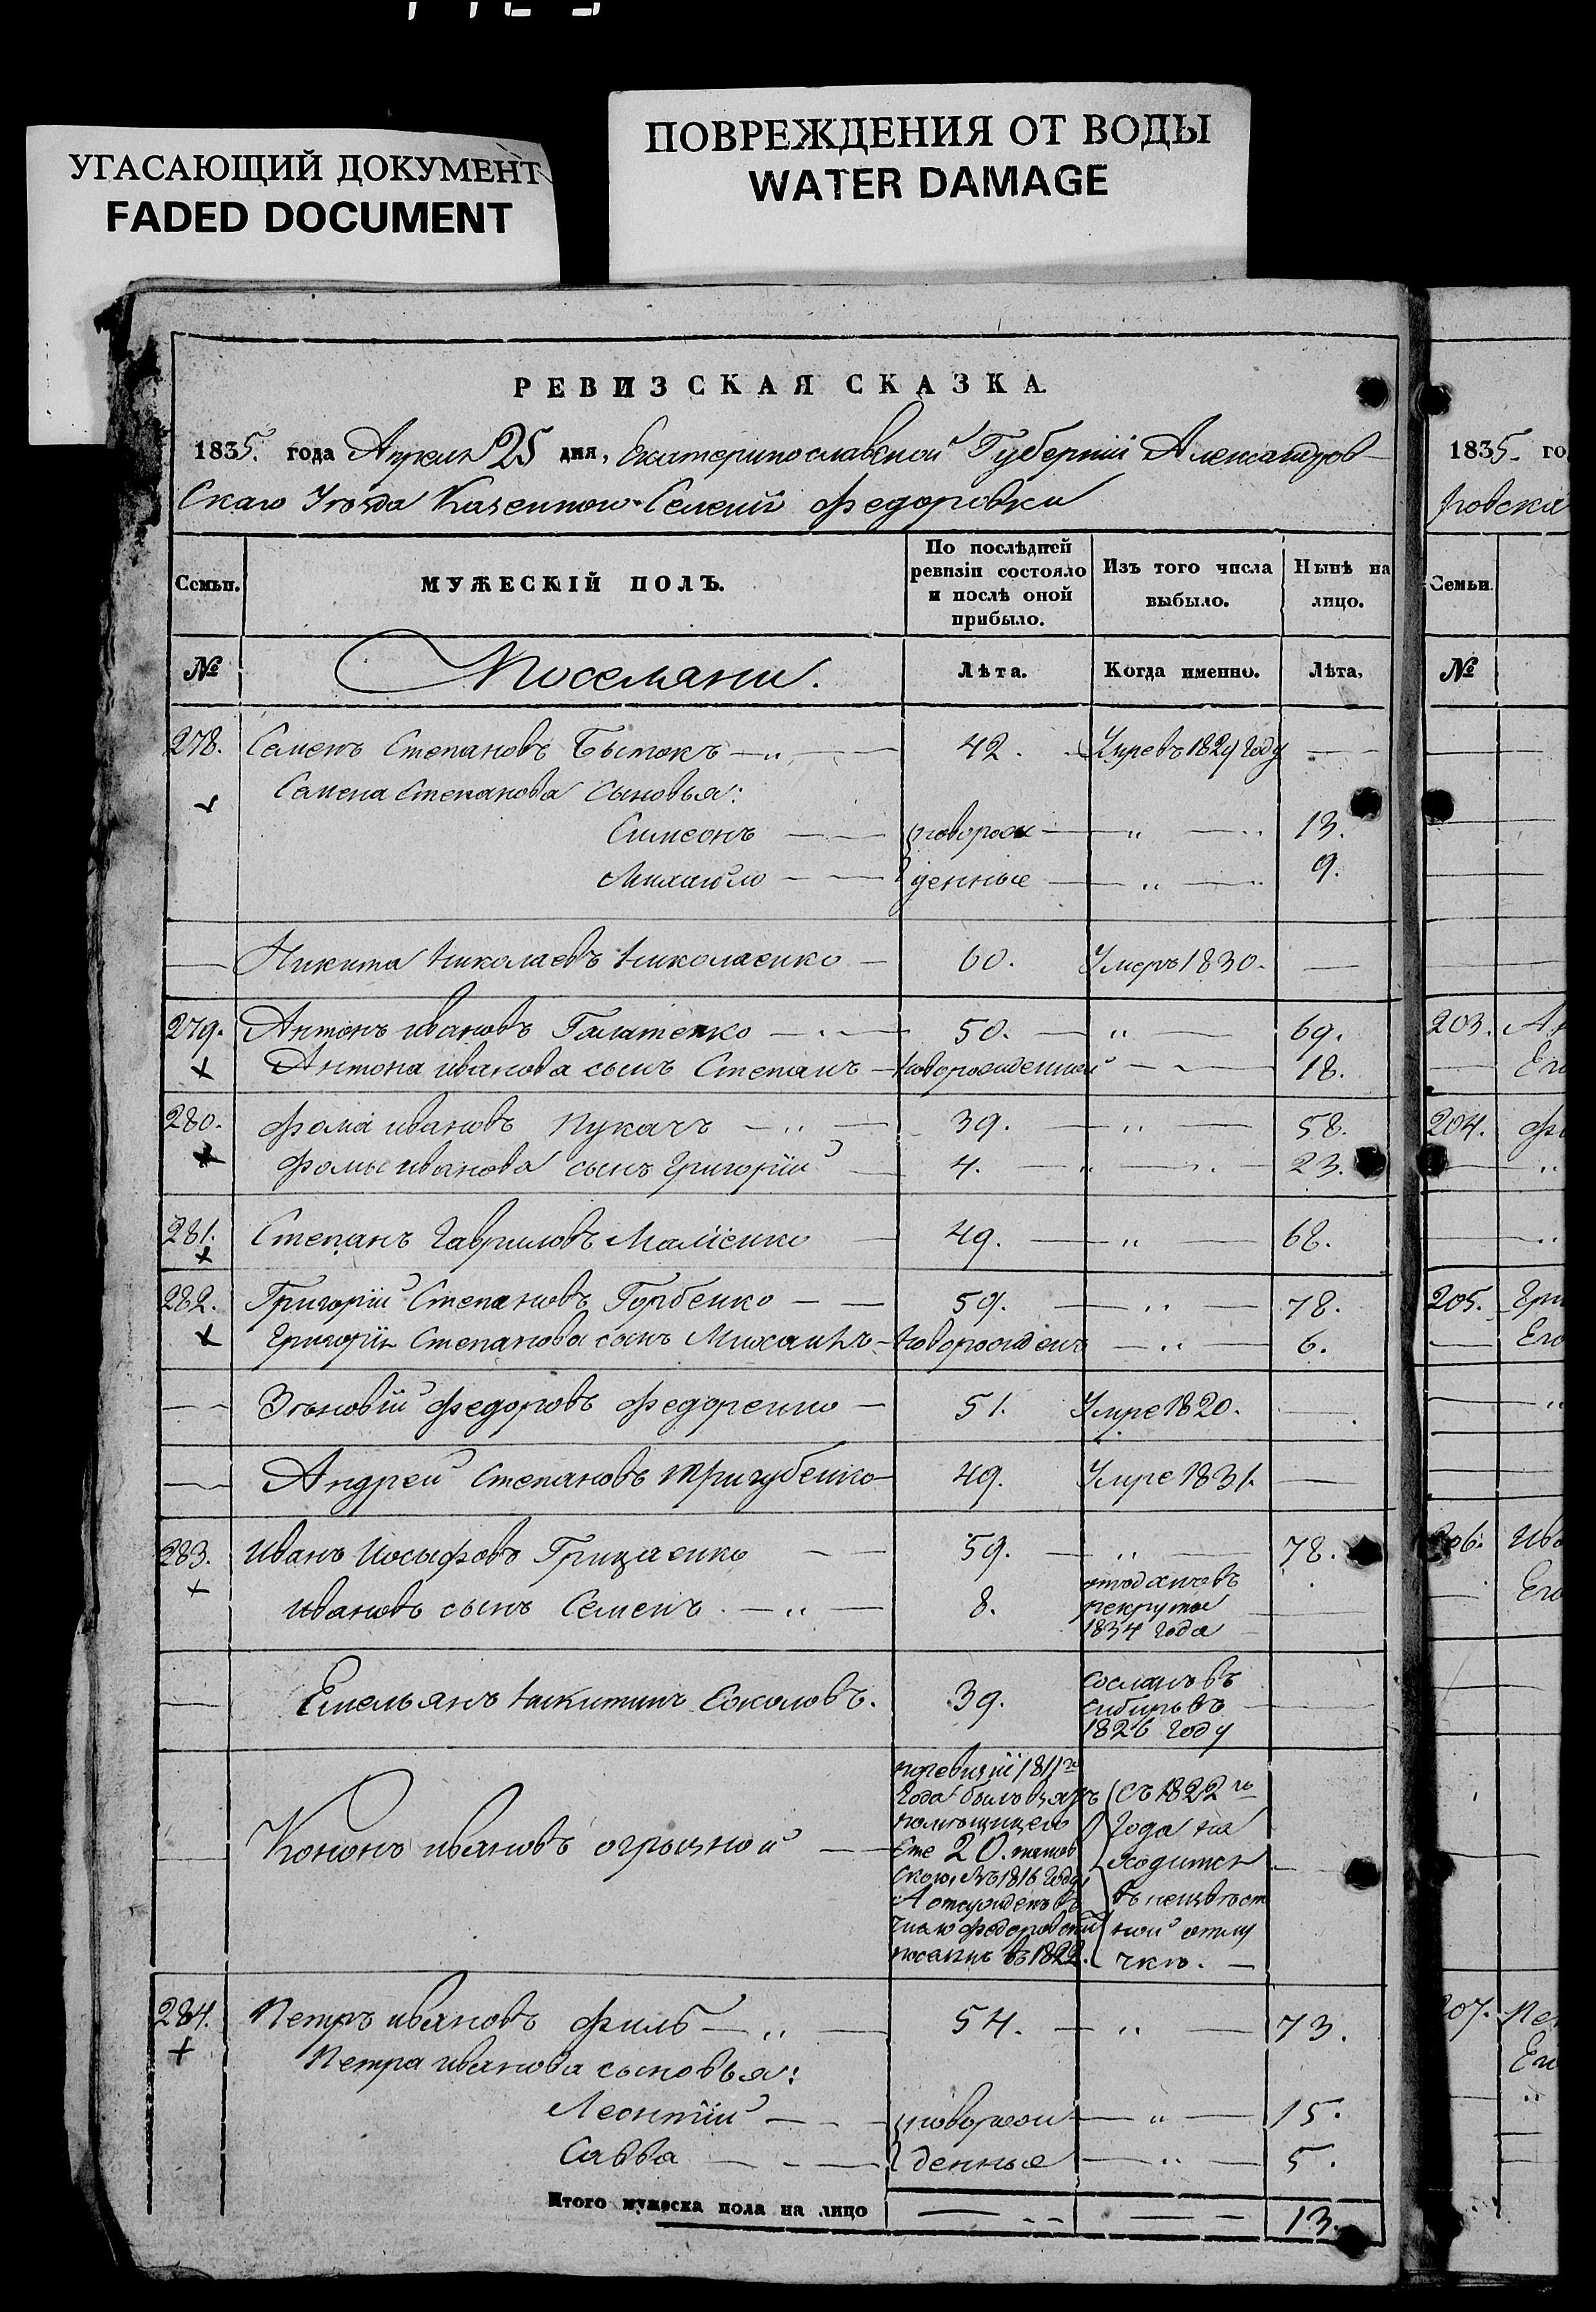 УГАСАЮЩИЙ ДОКУМЕНТ
FADED DOCUMENT
ПОВРЕЖДЕНИЯ ОТ ВОДЫ
WATER DAMAGE
РЕВИЗСКАЯ СКАЗКА.
1835. года Апреля 25 дня, Екатеринославской Губернiи Александров-
скаго Уезда Казенного Селенiя Федоровки
Семьи. МУЖЕСКIЙ ПОЛЪ. По послѣдней ревизiи состояло и послѣ оной прибыло. Изъ того числа выбыло. Нынѣ на лицо.
№ Поселяни. Лѣта. Когда именно. Лѣта,
278. Семенъ Степановъ Бытокъ 42. Умре въ 1829 году
Семена Степанова Сыновья:
Симеонъ новорож " 13.
Михайло денные " 9.
Никита Николаевъ Николаенко 60. Умеръ 1830.
279. Антонъ Ивановъ Галатенко 50. " 69.
Антона Иванова сынъ Степанъ Новорожденной 18.
280. Фома Ивановъ Пукачъ 39. " 58.
Фомы Иванова сынъ Григорiй 4. " 23.
281. Степанъ Гавриловъ 49. " 68.
282. Григорiй Степановъ Горбенко 59. " 78.
Григорiя Степанова сынъ Михаилъ Новорожденъ " 6.
Зѣновiй Федоровъ Федоренко 51. Умре 1820.
Андрей Степановъ Тригубенко 49. Умре 1831.
283. Иванъ Иосыфовъ Грицаенко 59. " 78.
Ивановъ сынъ Семенъ " 8. отоданъ въ
рекруты
1834 года
Емельянъ Никитинъ Соколовъ. 39. сосланъ въ
сибирь въ
1826 году
Кононъ Ивановъ Огрызной
по ревизiи 1811го
года былъ
помѣщицею
20.
1816 году
А отсужденъ въ
число Федоровскихъ
въ 1822.
съ 1822го
года на
ходится
въ неизвѣст
ной отлу
чкѣ.
284. Петръ Ивановъ Филь " 54. " 73.
Петра Иванова сыновья:
Леонтiй новорож " 15.
Савва денные " 5.
Итого мужеска пола на лицо 13.
1835. го
ровска
Семьи.
№
203. Ан
Его
204. Фо
"
"
205. Гри
Его
"
206. Ива
Его
207. Пе
Его
"